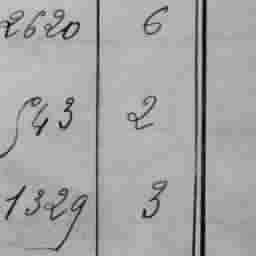 2620 6
543 2
1329 3